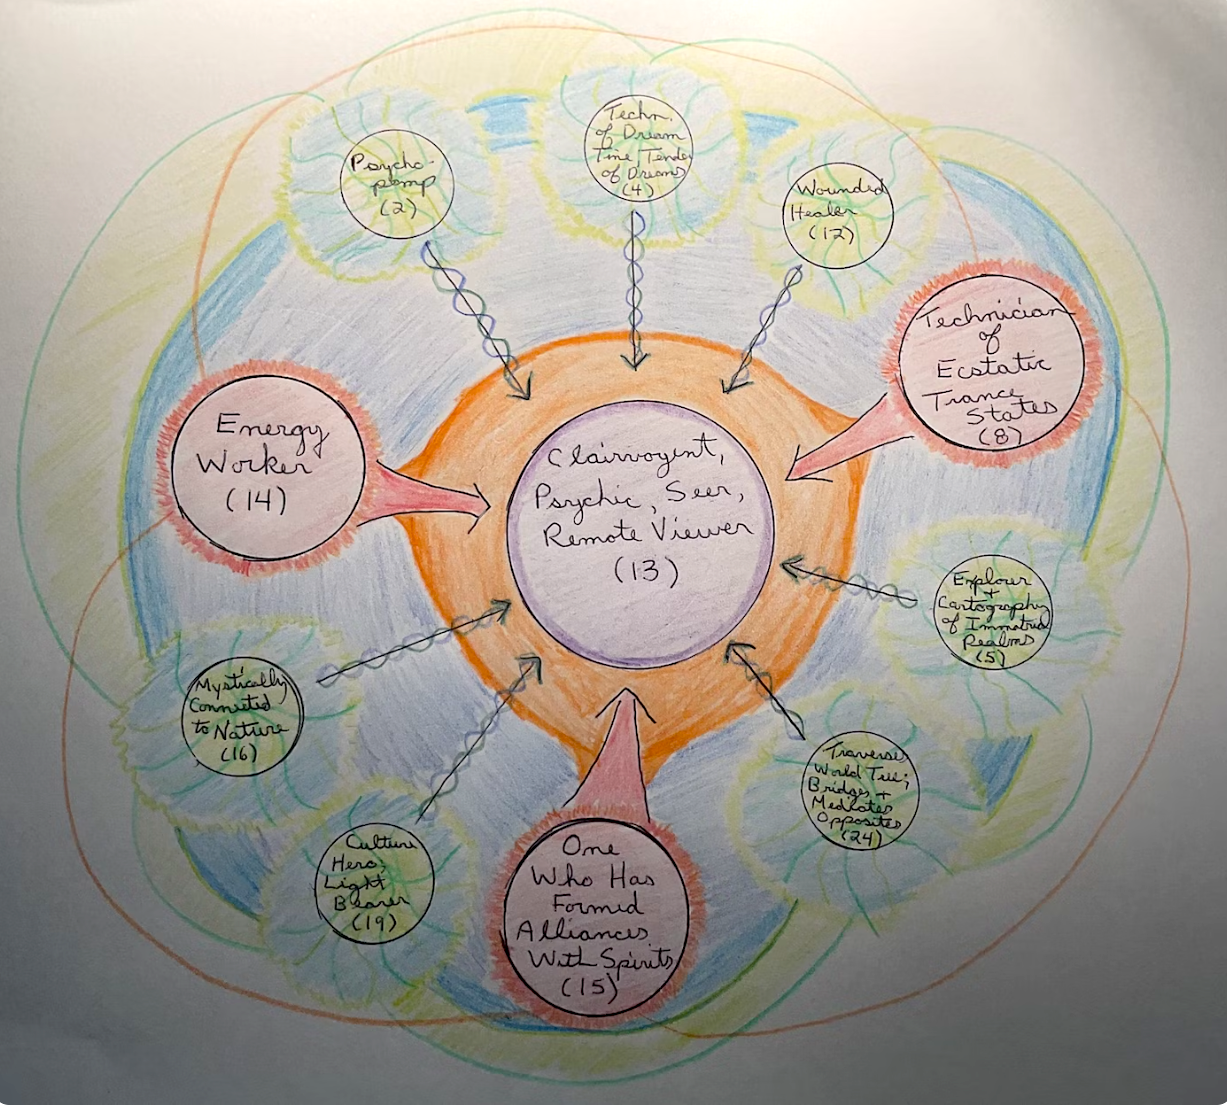 Psycho-
pomp
(2)
Techn.
of Dream
Time, Tender
of Dreams
(4)
Wounded
Healer
(12)
Technician
of
Ecstatic
Trance
States
(8)
Energy
Worker
(14)
Clairvoyent,
Psychic, Seer,
Remote Viewer
(13)
Explorer
+
Cartography
of Immaterial
Realms
(5)
Mystically
Connected
to Nature
(16)
Traverses
World Tree;
Bridges +
Mediates
Opposites
(24)
Culture
Hero,
Light
Bearer
(19)
One
Who Has
Formed
Alliances
With Spirits
(15)